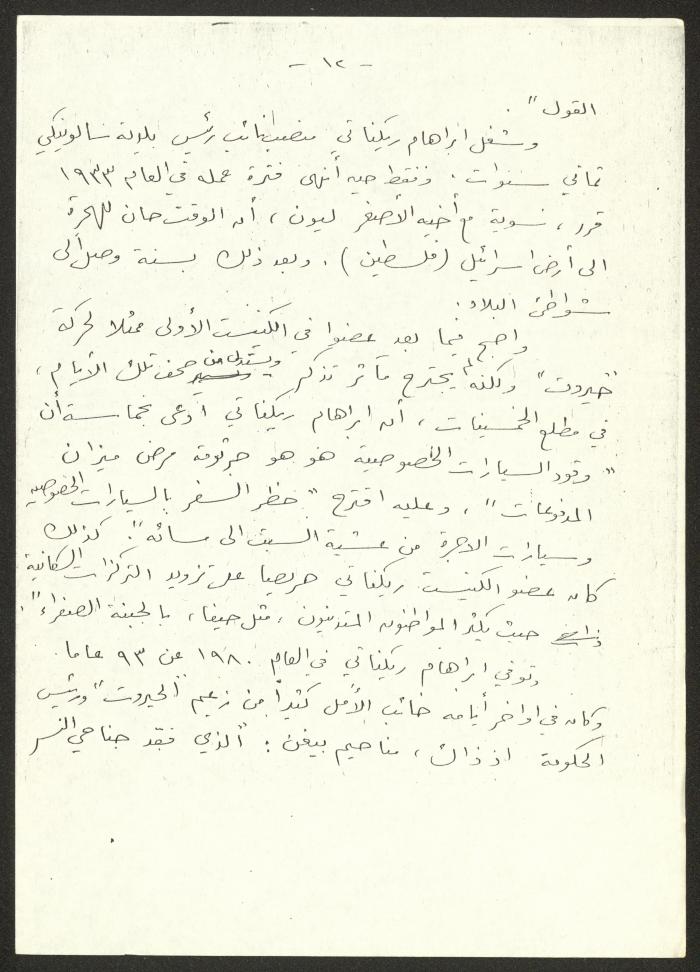 - ١٢ -
القول" .
وشغل ابراهام ريكناتي منصب نائب رئيس بلدية سالونيكي
ثماني سنوات . وفقط حين أنهى فترة عمله في العام ١٩٣٣
قرر ، سوية مع أخيه الأصغر ليون ، أن الوقت حان للهجرة
الى أرض اسرائيل (فلسطين) . وبعد ذلك بسنة وصل الى
شواطئ البلاد .
واصبح فيما بعد عضوا في الكنيست الأولى ممثلا لحركة
"حيروت" ولكنه لم يجترح مآثر تذكر ويستدل من صحف تلك الأيام ،
في مطلع الخمسينات ، أن ابراهام ريكناتي ادعى بحماسة أن
"وقود السيارات الخصوصية هو هو جرثومة مرض ميزان
المدفوعات" ، وعليه اقترح "حظر السفر بالسيارات الخصوصية
وسيارات الاجرة من عشية السبت الى مسائه" . كذلك
كان عضو الكنيست ريكناتي حريصا على تزويد التركزات السكانية
حيث يكثر المواطنون المتدينون ، مثل حيفا ، بالجبنة الصفراء" .
وتوفي ابراهام ريكناتي في العام ١٩٨٠ عن ٩٣ عاما .
وكان في اواخر أيامه خائب الأمل كثيراً من زعيم "الحيروت" ورئيس
الحكومة اذ ذاك ، مناحيم بيغن : "الذي فقد جناحي النسر